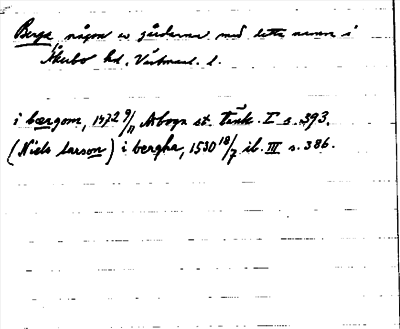 Berga någon av gårdarna med detta namn i
Åkerbo hd, Västmanl. l.
i bærgom, 1472 9/11 Arboga st. Tänk. I s. 393.
(Niels larson) i bergha, 1530 18/7 ib. III s. 386.